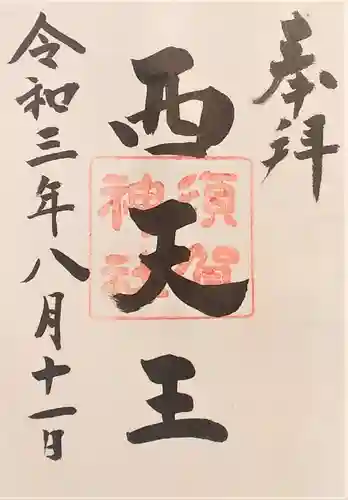 奉拝
西天王
須賀神社
令和三年八月十一日